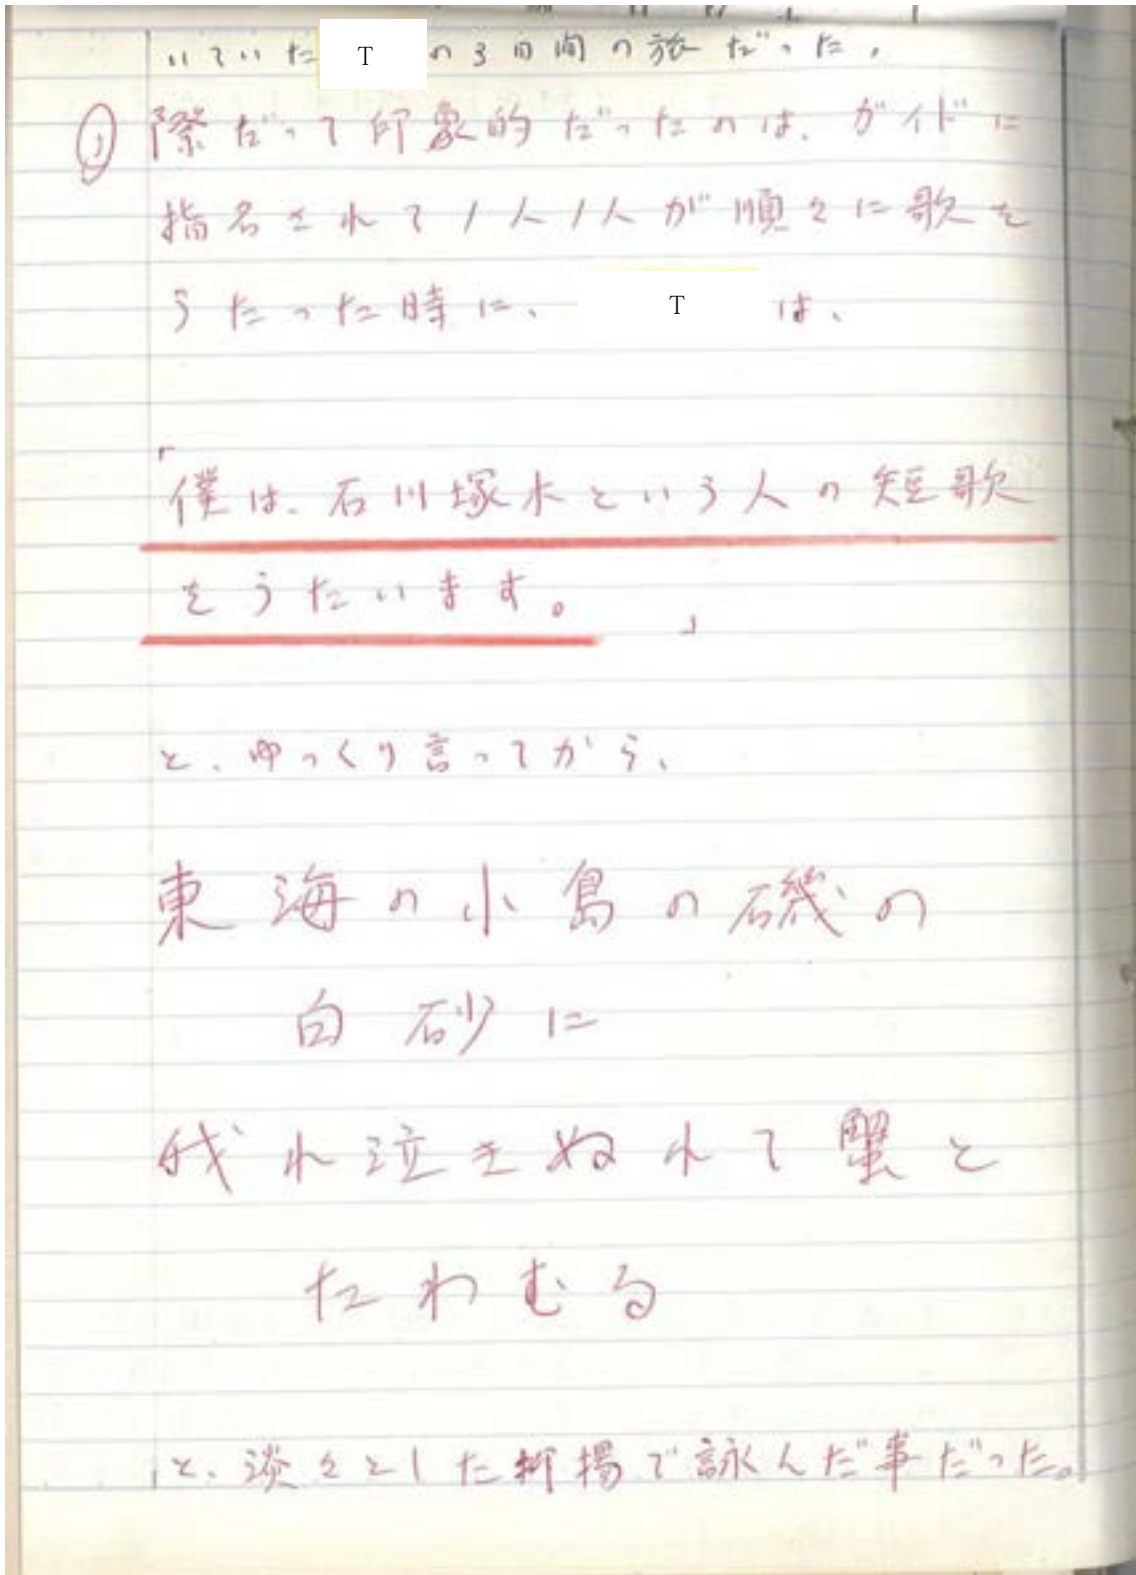 いていた T の3日間の旅だった,
① 際だって印象的だったのは、ガイドに
指名されて1人1人が順々に歌を
うたった時に、 T は、
「僕は、石川塚木という人の短歌
をうたいます。 」
と、ゆっくり言ってから、
東海の小島の磯の
白砂に
我れ泣きぬれて蟹と
たわむる
と、淡々とした抑揚で詠んだ事だった。